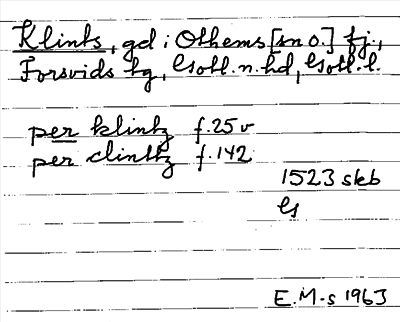 Klints, gd i Othems [sn o.] fj.,
Forsvids tg, Gotl. n. hd, Gotl. l.
per klintz f. 25 v
per clinttz f. 142
1523 skb
G
E.M-s 1963